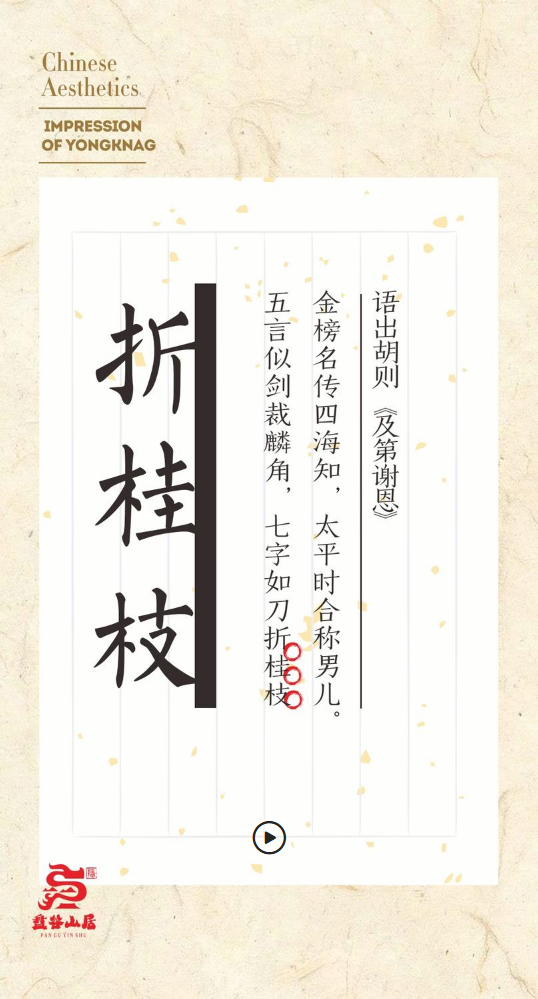 Chinese
Aesthetics
IMPRESSION
OF YONGKNAG
语出胡则《及第谢恩》
金榜名传四海知，太平时合称男儿。
五言似剑裁麟角，七字如刀折桂枝
折桂枝
PAN GU YIN SHU